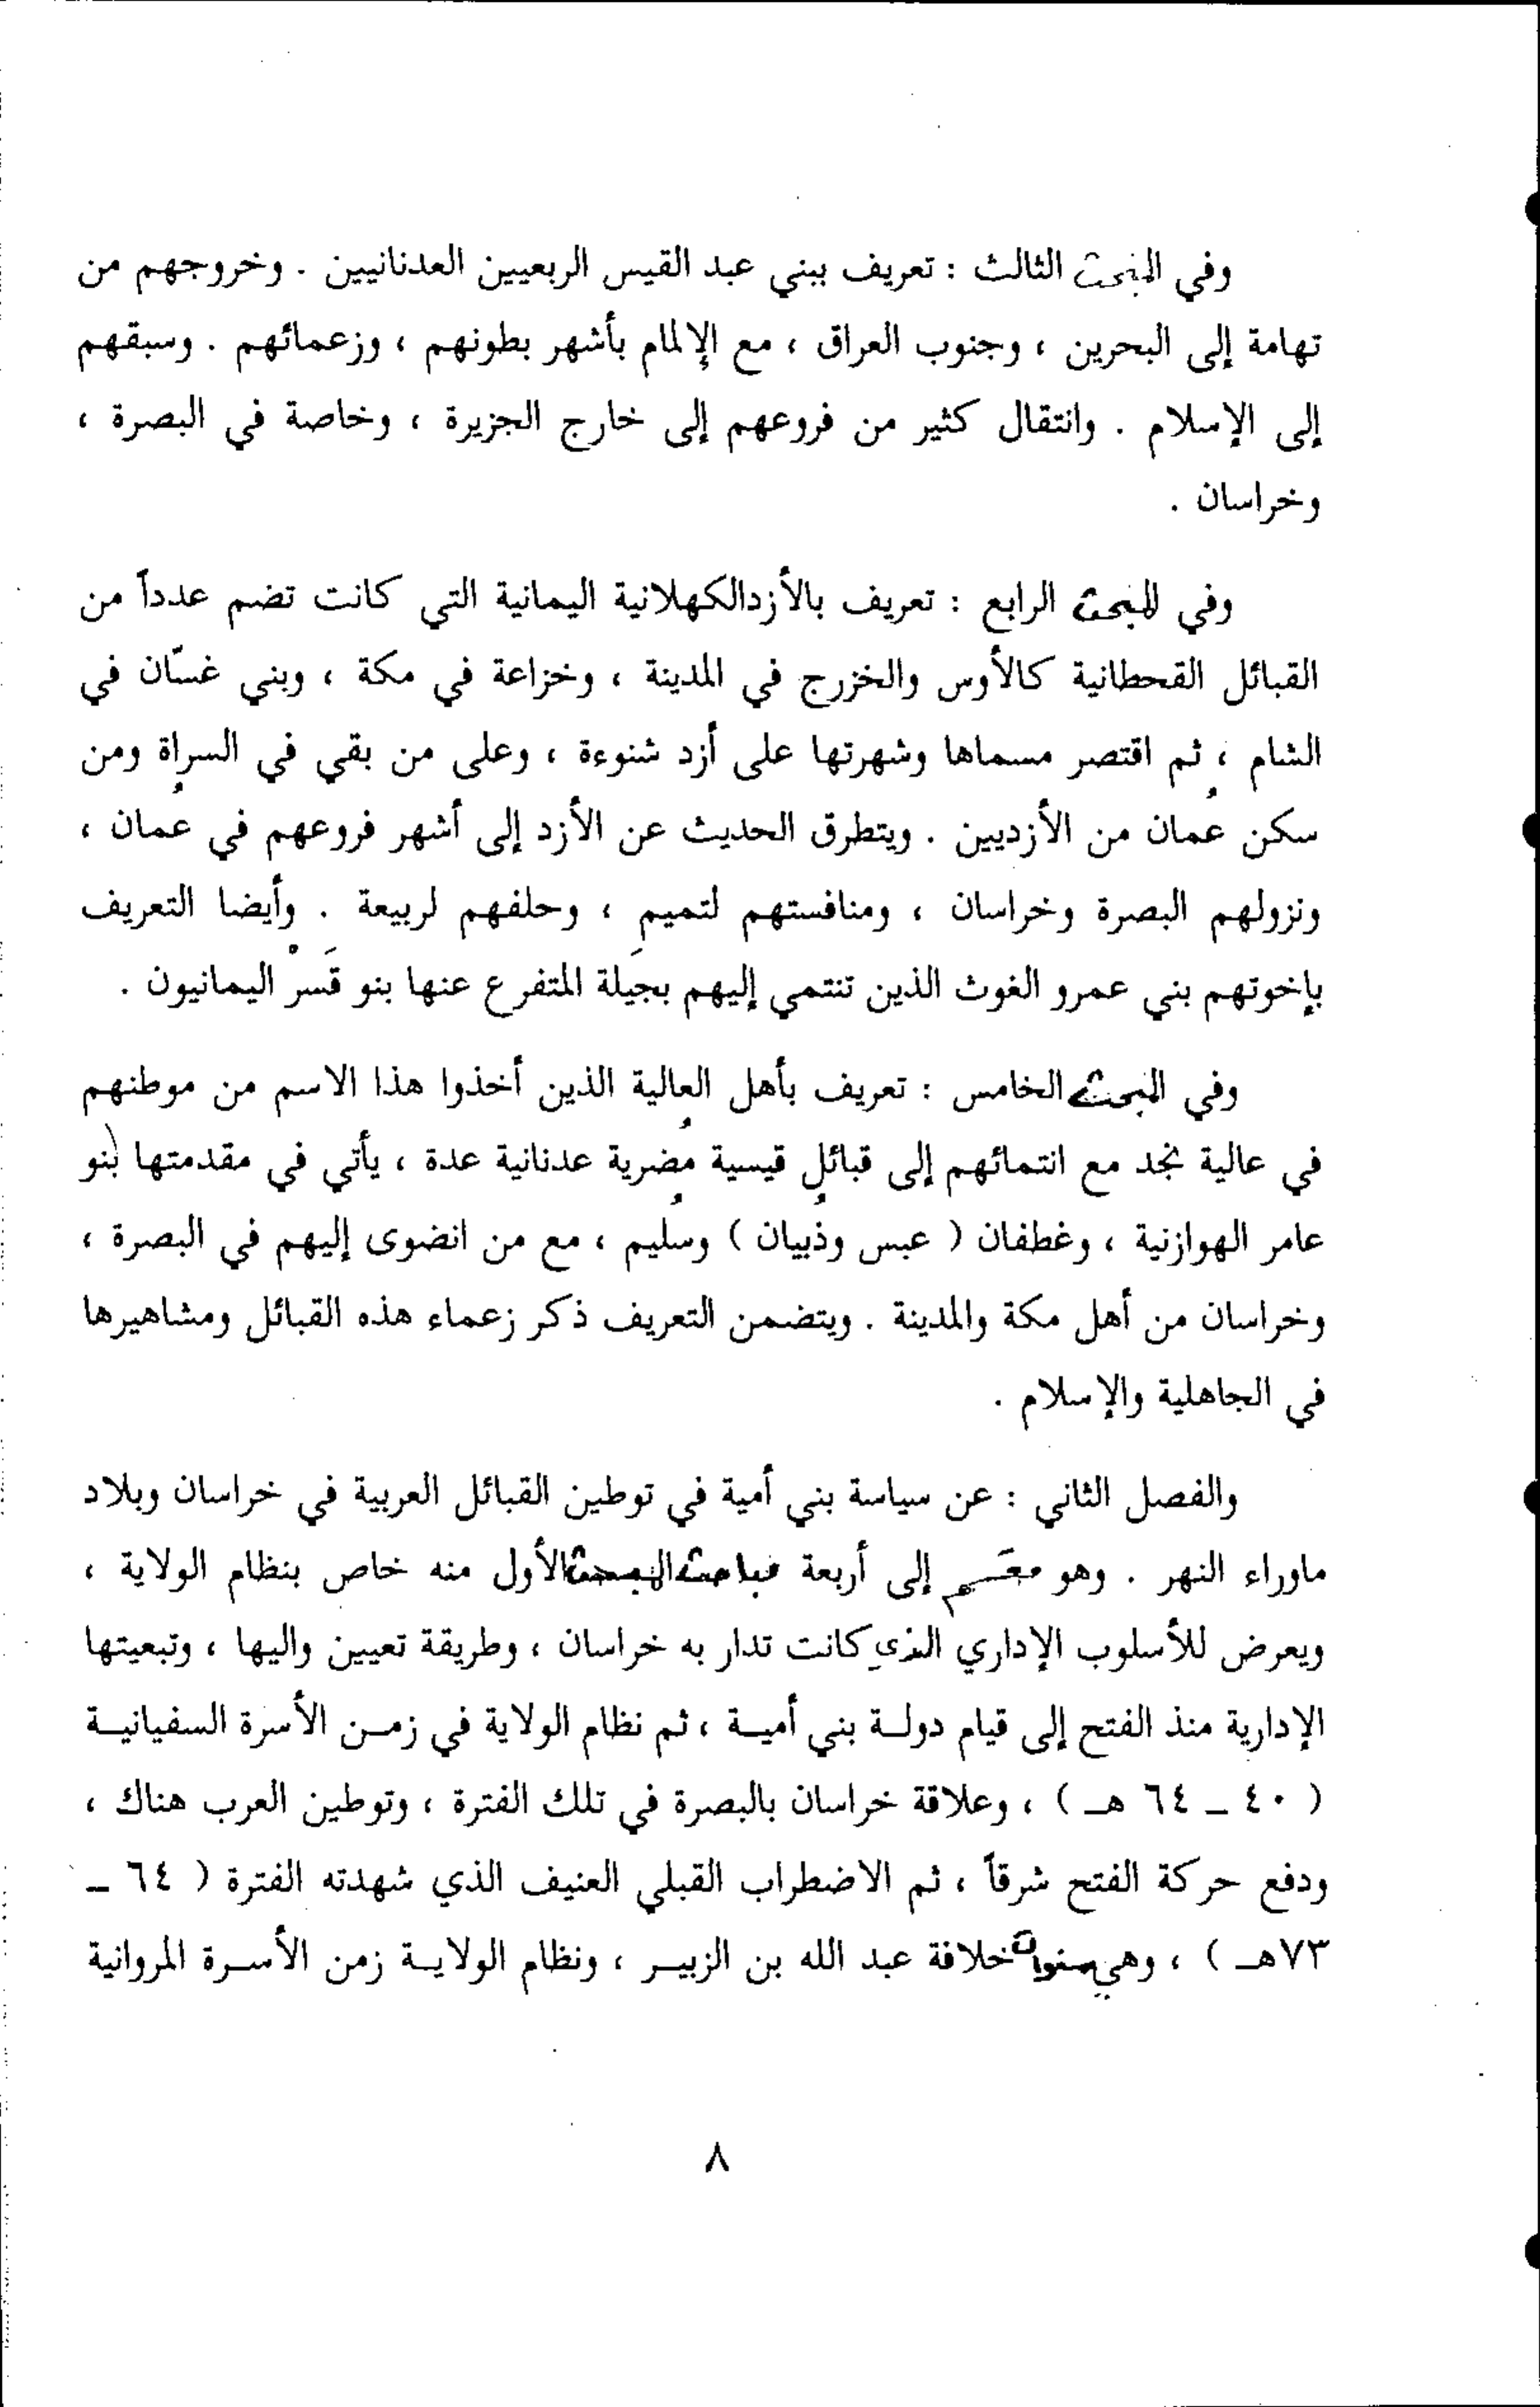 وفي المبحث الثالث : تعريف ببني عبد القيس الربعيين العدنانيين . وخروجهم من
تهامة إلى البحرين ، وجنوب العراق ، مع الإلمام بأشهر بطونهم ، وزعمائهم . وسبقهم
إلى الإسلام . وانتقال كثير من فروعهم إلى خارج الجزيرة ، وخاصة في البصرة ،
وخراسان .
وفي المبحث الرابع : تعريف بالأزدالكهلانية اليمانية التي كانت تضم عدداً من
القبائل القحطانية كالأوس والخزرج في المدينة ، وخزاعة في مكة ، وبني غسّان في
الشام ، ثم اقتصر مسماها وشهرتها على أزد شنوءة ، وعلى من بقي في السراة ومن
سكن عُمان من الأزديين . ويتطرق الحديث عن الأزد إلى أشهر فروعهم في عُمان ،
ونزولهم البصرة وخراسان ، ومنافستهم لتميم ، وحلفهم لربيعة . وأيضا التعريف
بإخوتهم بني عمرو الغوث الذين تنتمي إليهم بجَيلة المتفرع عنها بنو قَسْر اليمانيون .
وفي المبحث الخامس : تعريف بأهل العالية الذين أخذوا هذا الاسم من موطنهم
في عالية نجد مع انتمائهم إلى قبائل قيسية مُضرية عدنانية عدة ، يأتي في مقدمتها بنو
عامر الهوازنية ، وغطفان ( عبس وذُبيان ) وسُليم ، مع من انضوى إليهم في البصرة ،
وخراسان من أهل مكة والمدينة . ويتضمن التعريف ذكر زعماء هذه القبائل ومشاهيرها
في الجاهلية والإسلام .
والفصل الثاني : عن سياسة بني أمية في توطين القبائل العربية في خراسان وبلاد
ماوراء النهر . وهو مقسم إلى أربعة مباحث المبحث الأول منه خاص بنظام الولاية ،
ويعرض للأسلوب الإداري الذي كانت تدار به خراسان ، وطريقة تعيين واليها ، وتبعيتها
الإدارية منذ الفتح إلى قيام دولـة بني أميـة ، ثم نظام الولاية في زمـن الأسرة السفيانيـة
( ٤٠ – ٦٤ هـ ) ، وعلاقة خراسان بالبصرة في تلك الفترة ، وتوطين العرب هناك ،
ودفع حركة الفتح شرقاً ، ثم الاضطراب القبلي العنيف الذي شهدته الفترة ( ٦٤ –
٧٣هـ ) ، وهي سنوات خلافة عبد الله بن الزبيـر ، ونظام الولايـة زمن الأسـرة المروانية
٨